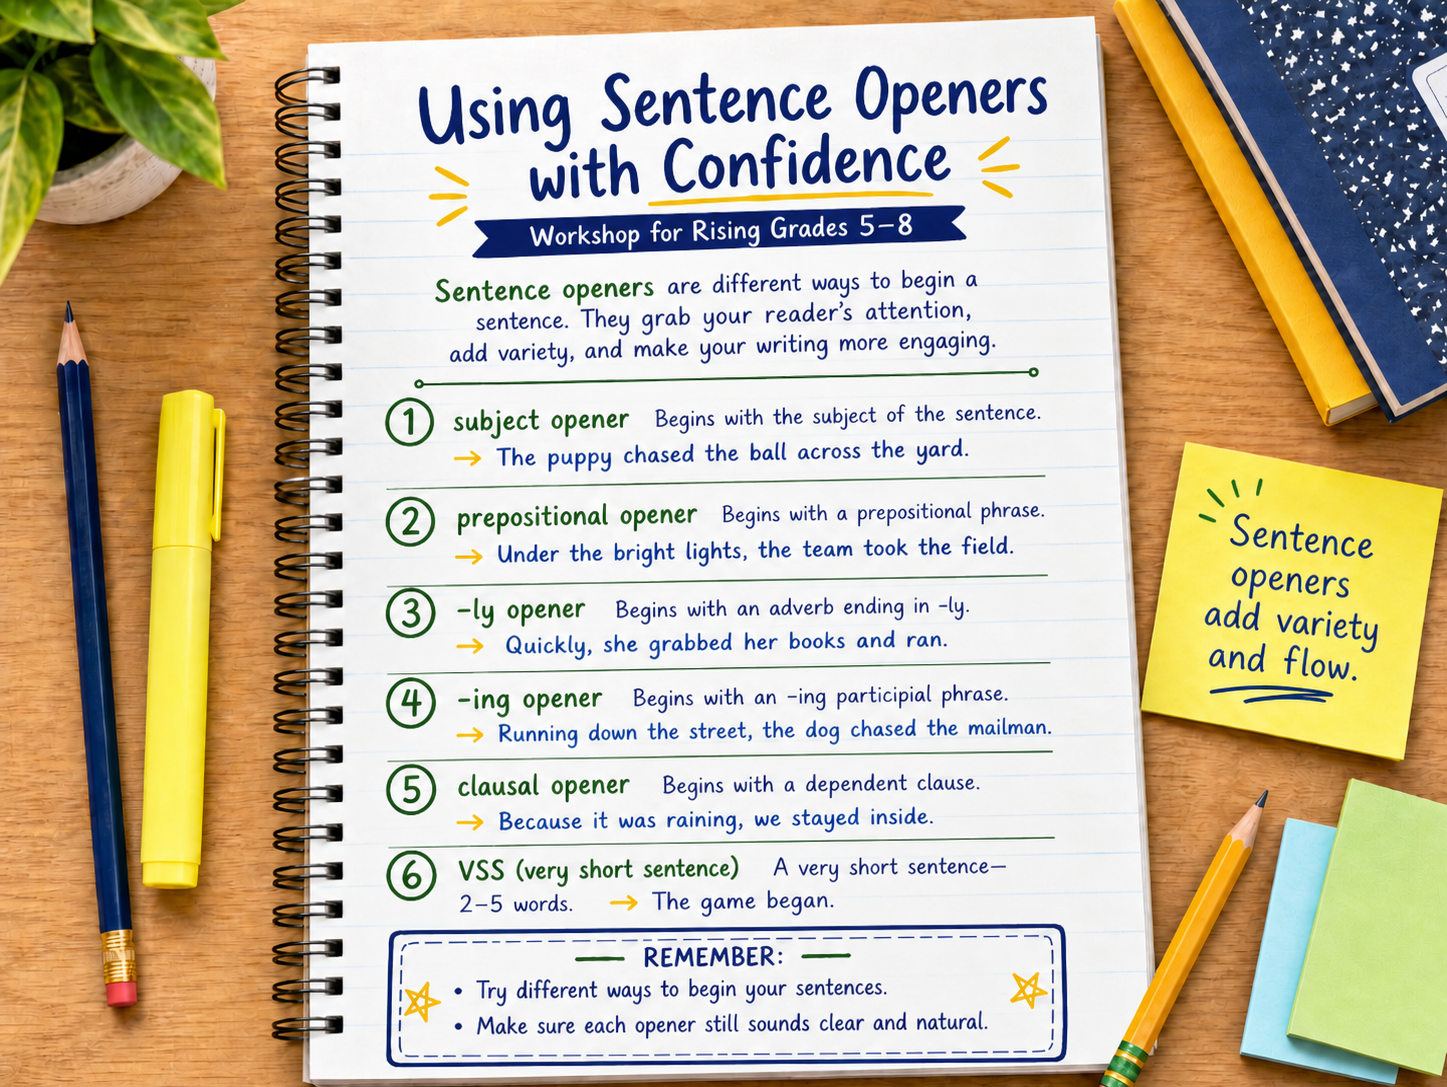 Using Sentence Openers
with Confidence
Workshop for Rising Grades 5–8
Sentence openers are different ways to begin a
sentence. They grab your reader's attention,
add variety, and make your writing more engaging.
1 subject opener Begins with the subject of the sentence.
→ The puppy chased the ball across the yard.
2 prepositional opener Begins with a prepositional phrase.
→ Under the bright lights, the team took the field.
3 –ly opener Begins with an adverb ending in –ly.
→ Quickly, she grabbed her books and ran.
4 –ing opener Begins with an –ing participial phrase.
→ Running down the street, the dog chased the mailman.
5 clausal opener Begins with a dependent clause.
→ Because it was raining, we stayed inside.
6 VSS (very short sentence) A very short sentence—
2–5 words. → The game began.
REMEMBER:
• Try different ways to begin your sentences.
• Make sure each opener still sounds clear and natural.
Sentence
openers
add variety
and flow.